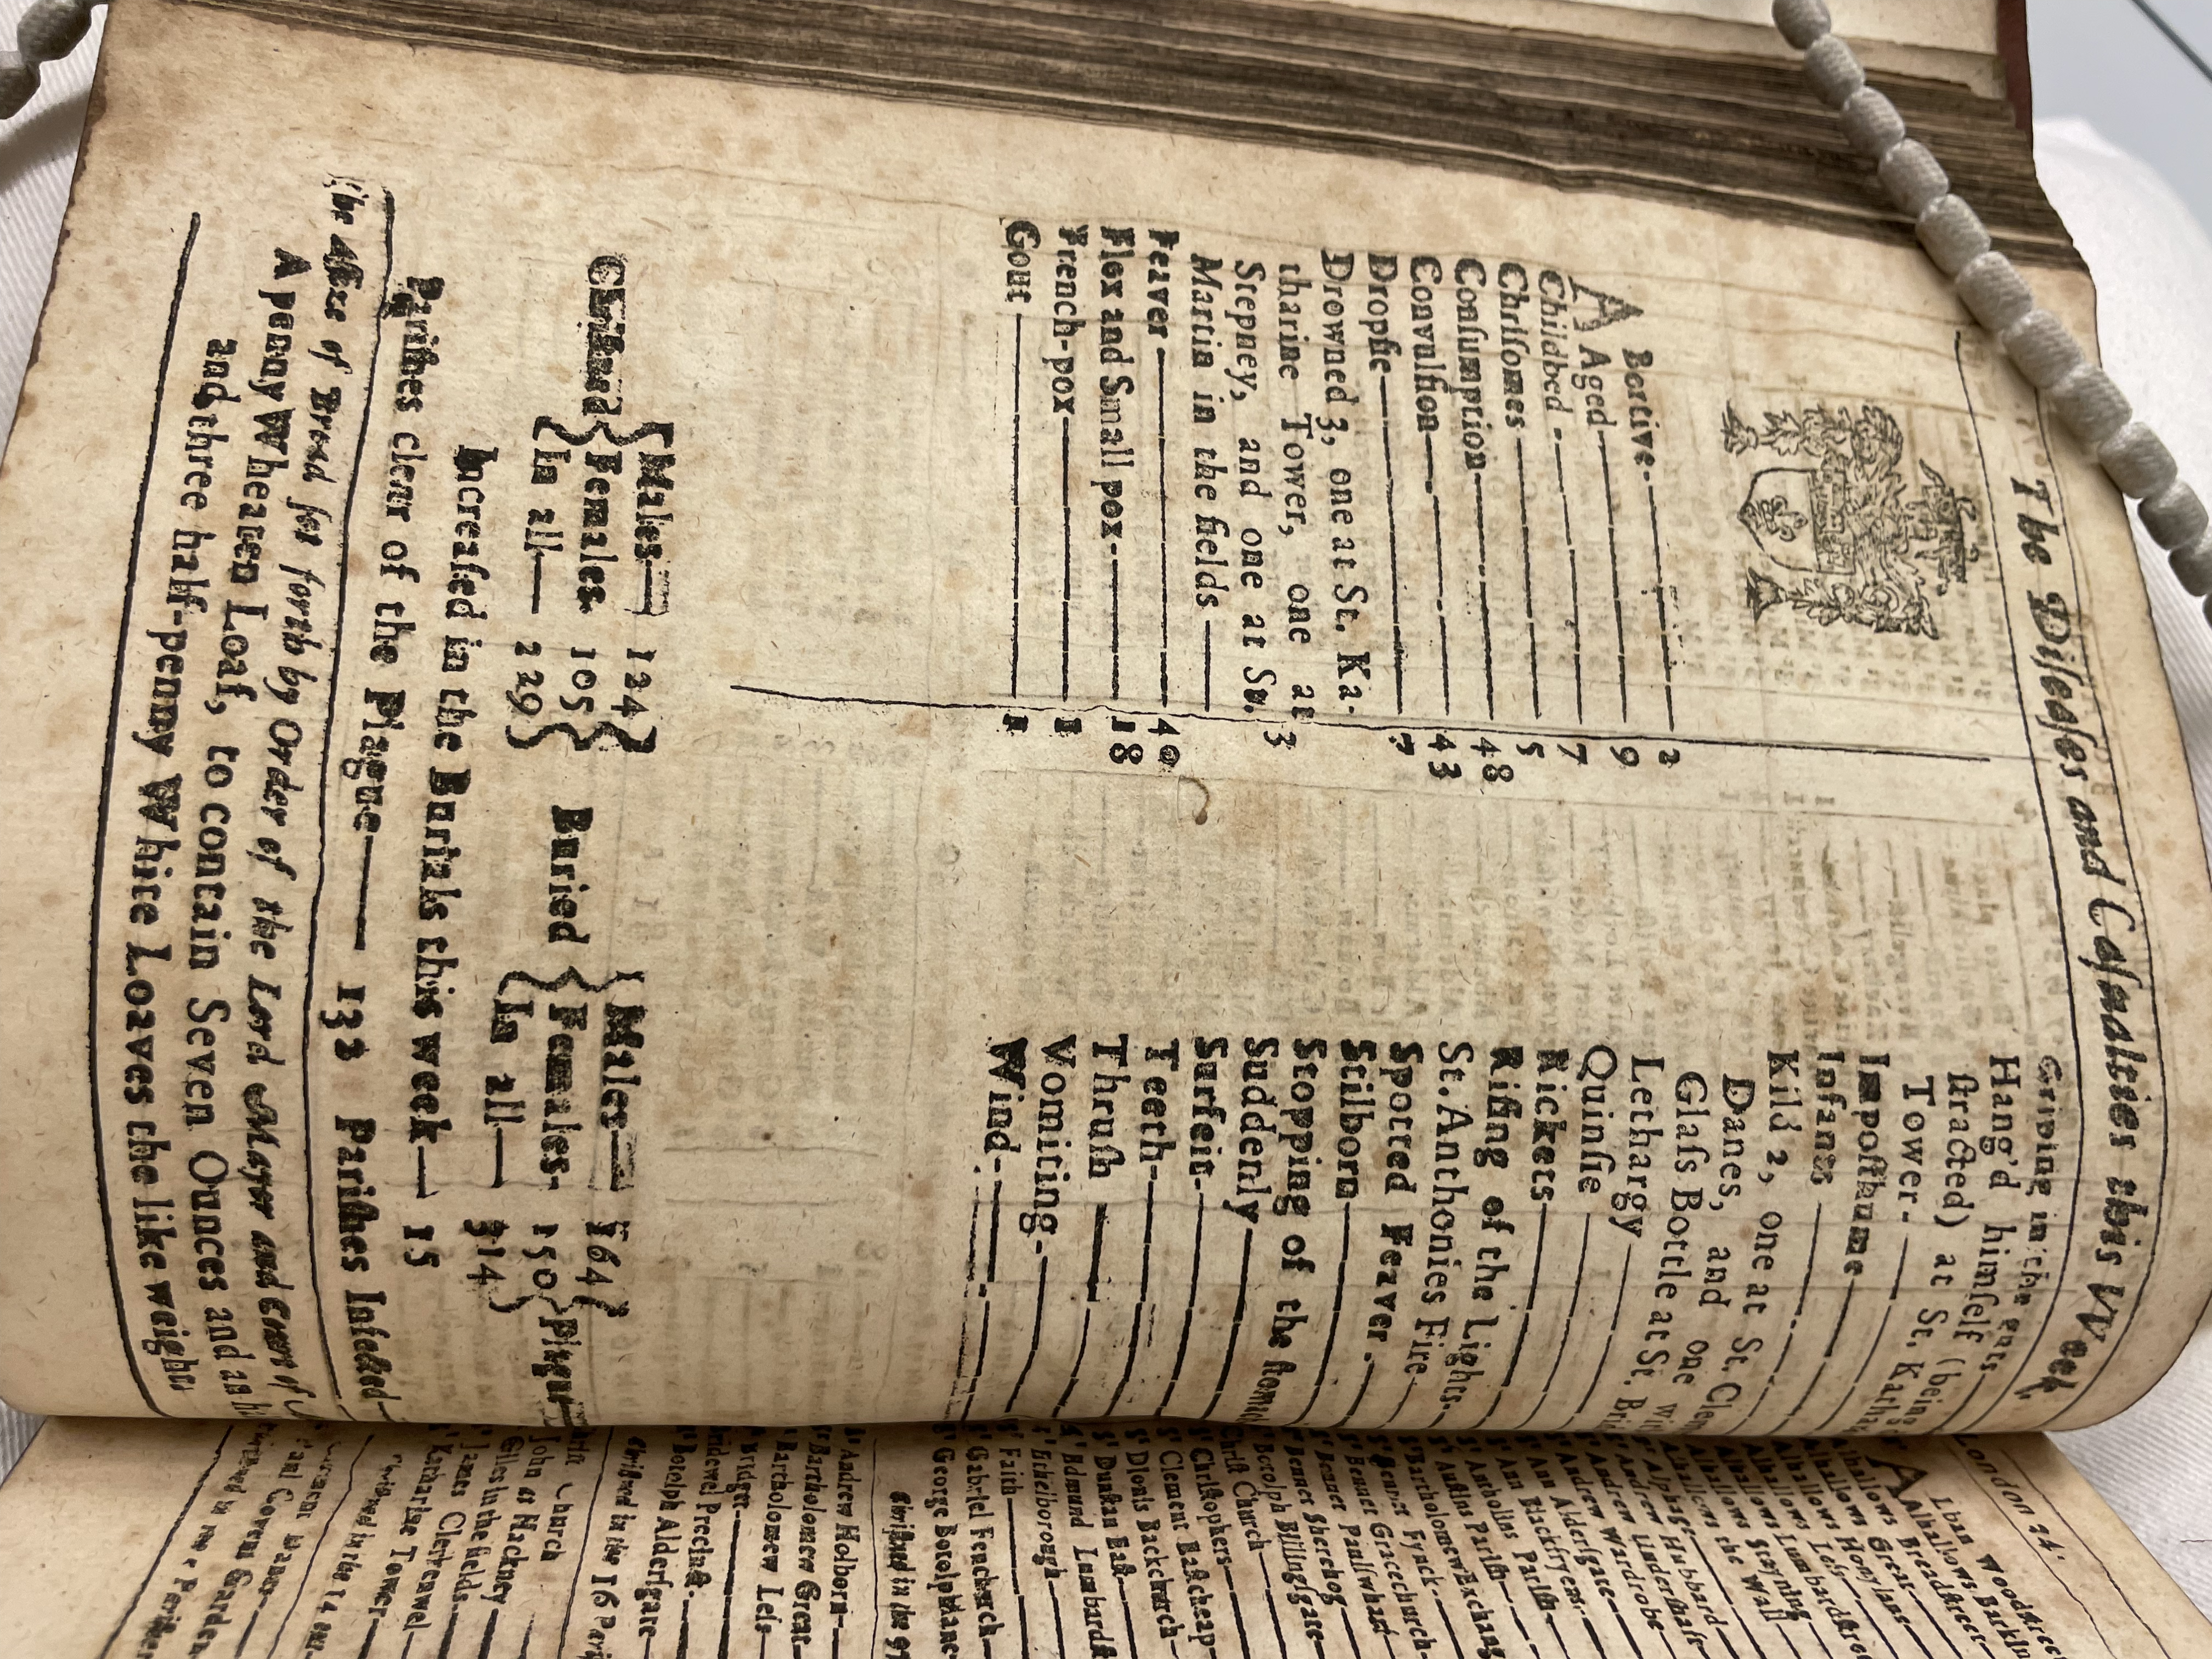 The Diſeaſes and Caſualties this Week
A Bortive 2
Aged 9
Childbed 7
Chriſomes 5
Conſumption 48
Convulſion 43
Dropſie 7
Drowned 3, one at St. Ka-
tharine Tower, one at
Stepney, and one at St.
Martin in the fields 3
Feaver 40
Flox and Small pox 18
French-pox 1
Gout 1
Griping in the guts
Hang'd himſelf (being
ſtracted) at St. Kathar
Tower
Impoſthume
Infants
Kild 2, one at St. Clem
Danes, and one wit
Glaſs Bottle at St. Bri
Lethargy
Quinſie
Rickets
Riſing of the Lights
St. Anthonies Fire
Spotted Feaver
Stilborn
Stopping of the ſtomac
Suddenly
Surfeit
Teeth
Thruſh
Vomiting
Wind
Chriſtned { Males 124 } Buried { Males 164 }
Females 105 Females 150 Plague
In all 229 In all 314
Increaſed in the Burials this week 15
Pariſhes clear of the Plague 132 Pariſhes Infected
The Aſſize of Bread ſet forth by Order of the Lord Mayor and Court of
A penny Wheaten Loaf, to contain Seven Ounces and an h
and three half-penny White Loaves the like weight
London 24
Alban Woodſtree
Alhallows Barkin
Alhallows Breadſtreet
Alhallows Great
Alhallows Honylane
Alhallows Leſs
Alhallows Lumbardſtre
Alhallows Stayning
Alhallows the Wall
Alphage
Andrew Hubbard
Andrew Underſhaft
Andrew Wardrobe
Ann Alderſgate
Ann Blackfryers
Antholins Pariſh
Auſtins Pariſh
Bartholomew Exchang
Bennet Fynck
Bennet Gracechurch
Bennet Paulſwharf
Bennet Sherehog
Botolph Billingſgate
Chriſt Church
Chriſtophers
Clement Eaſtcheap
Dionis Backchurch
Dunſtan Eaſt
Edmund Lumbardſt
Ethelborough
Faith
Gabriel Fenchurch
George Botolphlane
Chriſtned in the 97
Andrew Holborn
Bartholomew Great
Bartholomew Leſs
Bridget
Bridewel Precinct
Botolph Alderſgate
Chriſtned in the 16 Pari
Chriſt Church
John at Hackney
Giles in the fields
James Clerkenwel
Katharine Tower
Chriſtned in the 14 out
Clement Danes
Paul Covent Garden